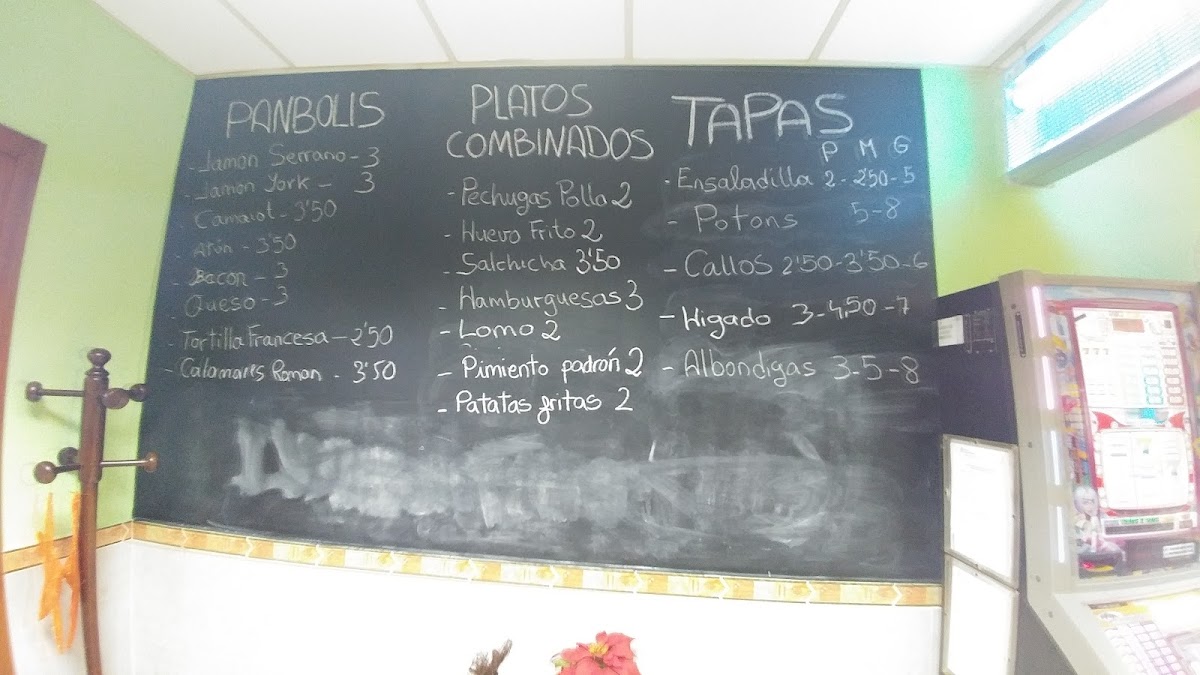 PANBOLIS
- Jamon Serrano - 3
- Jamon York - 3
Camaiot - 3'50
- Atún - 3'50
- Bacon - 3
- Queso - 3
- Tortilla Francesa - 2'50
- Calamares Roman - 3'50
PLATOS
COMBINADOS
- Pechugas Pollo 2
- Huevo Frito 2
- Salchicha 3'50
- Hamburguesas 3
- Lomo 2
- Pimiento padrón 2
- Patatas fritas 2
TAPAS
P M G
- Ensaladilla 2 - 2'50 - 5
- Potons 5 - 8
- Callos 2'50 - 3'50 - 6
- Higado 3 - 4,50 - 7
- Albondigas 3 - 5 - 8